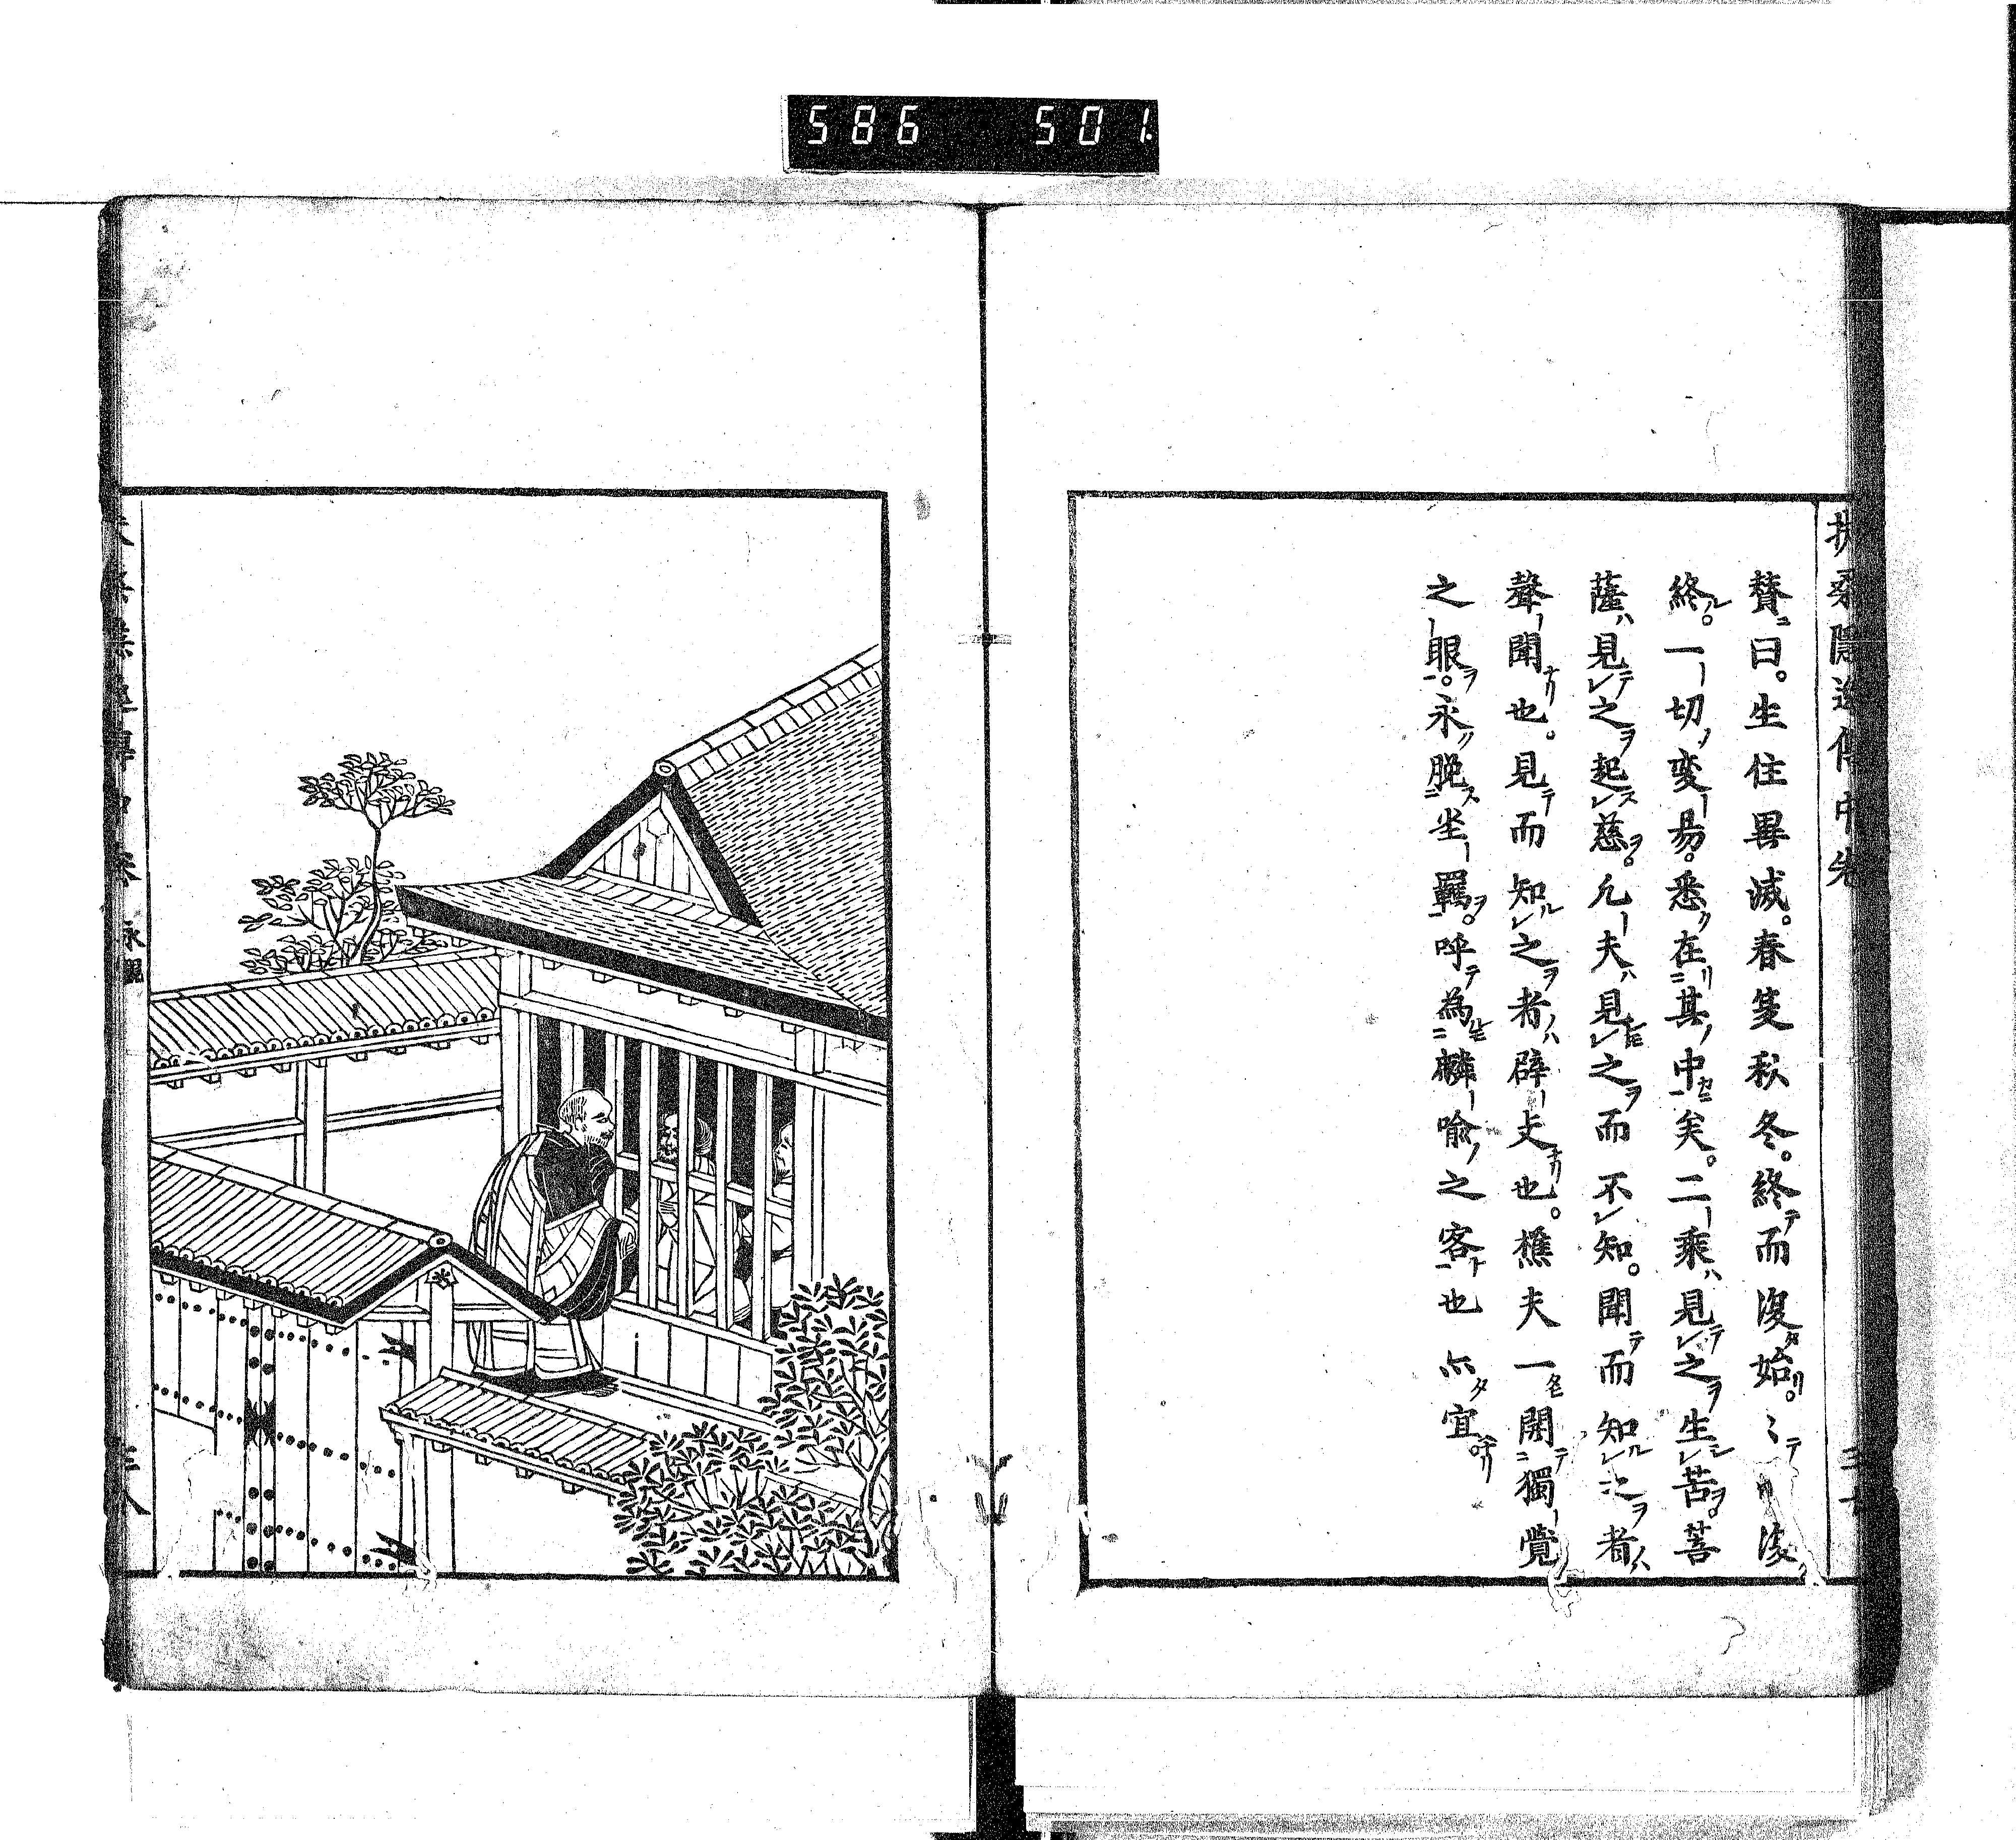 586 501
扶桑隠逸傳中卷
賛曰。生住異滅。春夏秋冬。終而復始。〻而復
終。一切変易。悉在其中矣。二乗見之生苦。菩
薩見之起慈。凡夫見之而不知。聞而知之者
聲聞也。見而知之者辟支也。樵夫一開獨覺
之眼。永脱坐羈。呼為麟喩之客也亦宜
永觀